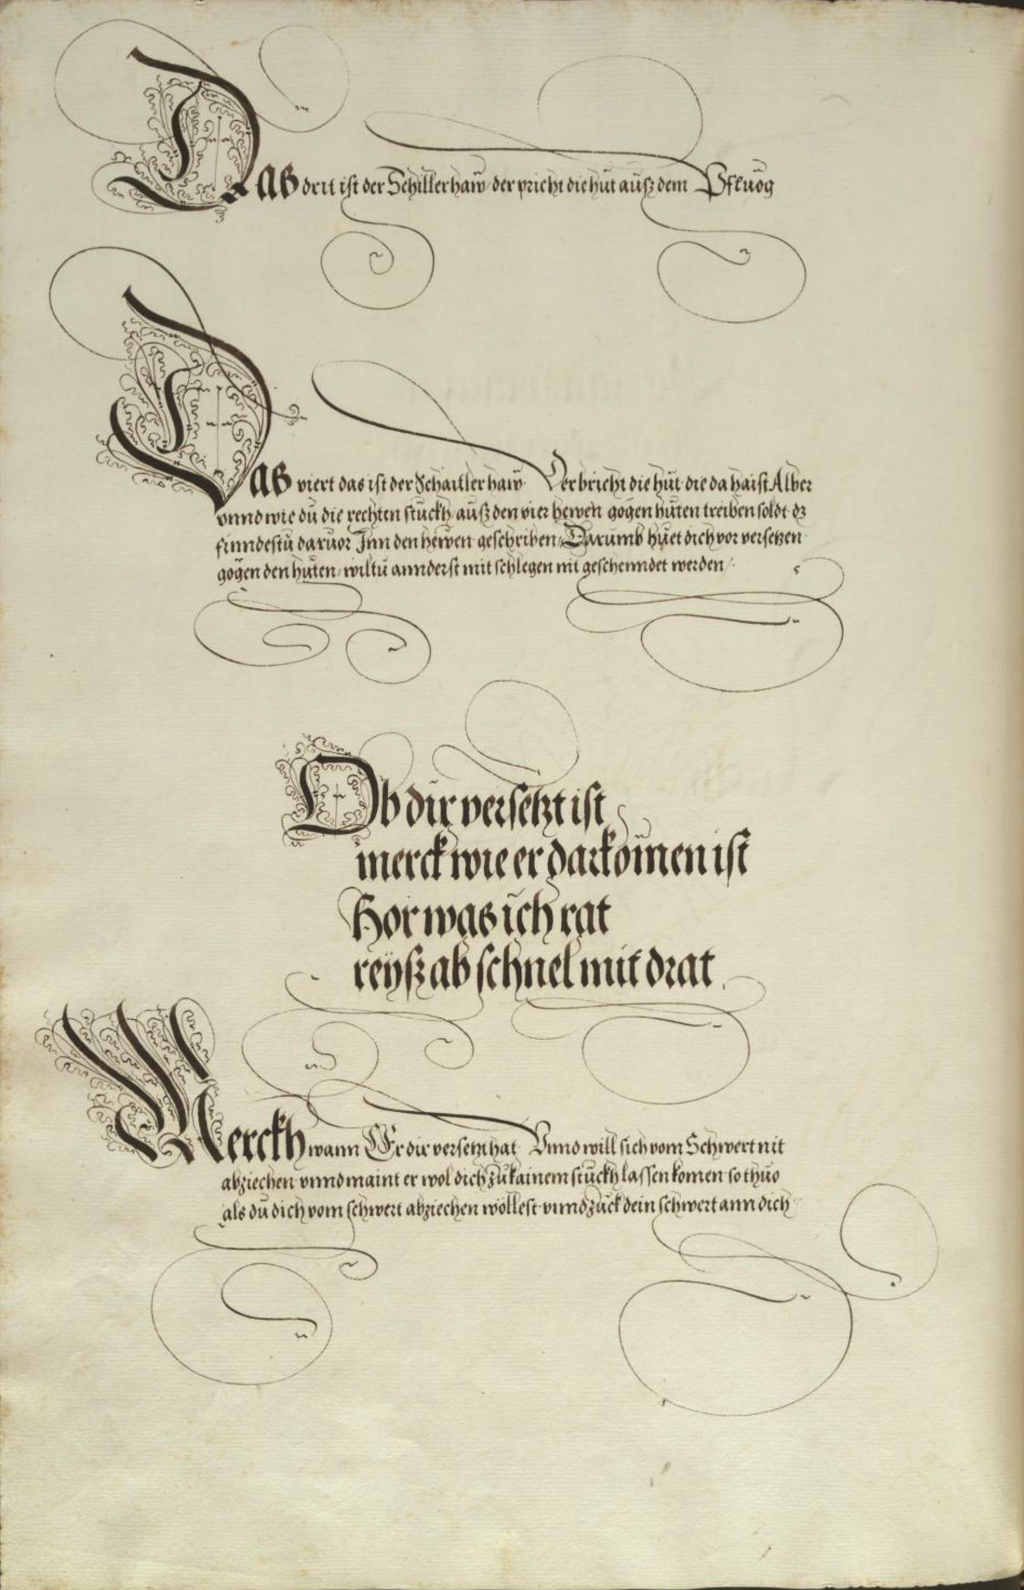 Das drit ist der Schillerhaw der pricht die hůt aůß dem Pflůog
Das viert das ist der Schaitlerhaw Der bricht die hůt die da haist Alber
vnnd wie dů die rechten stůckh aůß den vier hewen gögen hůten treiben soldt dz
finndestů daruor Inn den hewen geschriben / Darumb hůet dich vor versetzen
gögen den hůten / wiltů annderst mit schlegen nit geschenndet werden /
Ob dir versetzt ist
merck wie er darkom̄en ist
Hör was ich rat
reyß ab schnel mit drat
Merckh wann Er dir versetzt hat Vnnd will sich vom Schwert nit
abziechen vnnd maint er wol dich zů kainem stůckh lassen komen so thůo
als dů dich vom schwert abziechen wöllest vnnd zůck dein schwert ann dich